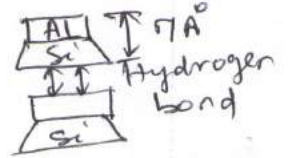 Al
Si
7A°
Hydrogen
bond
Si